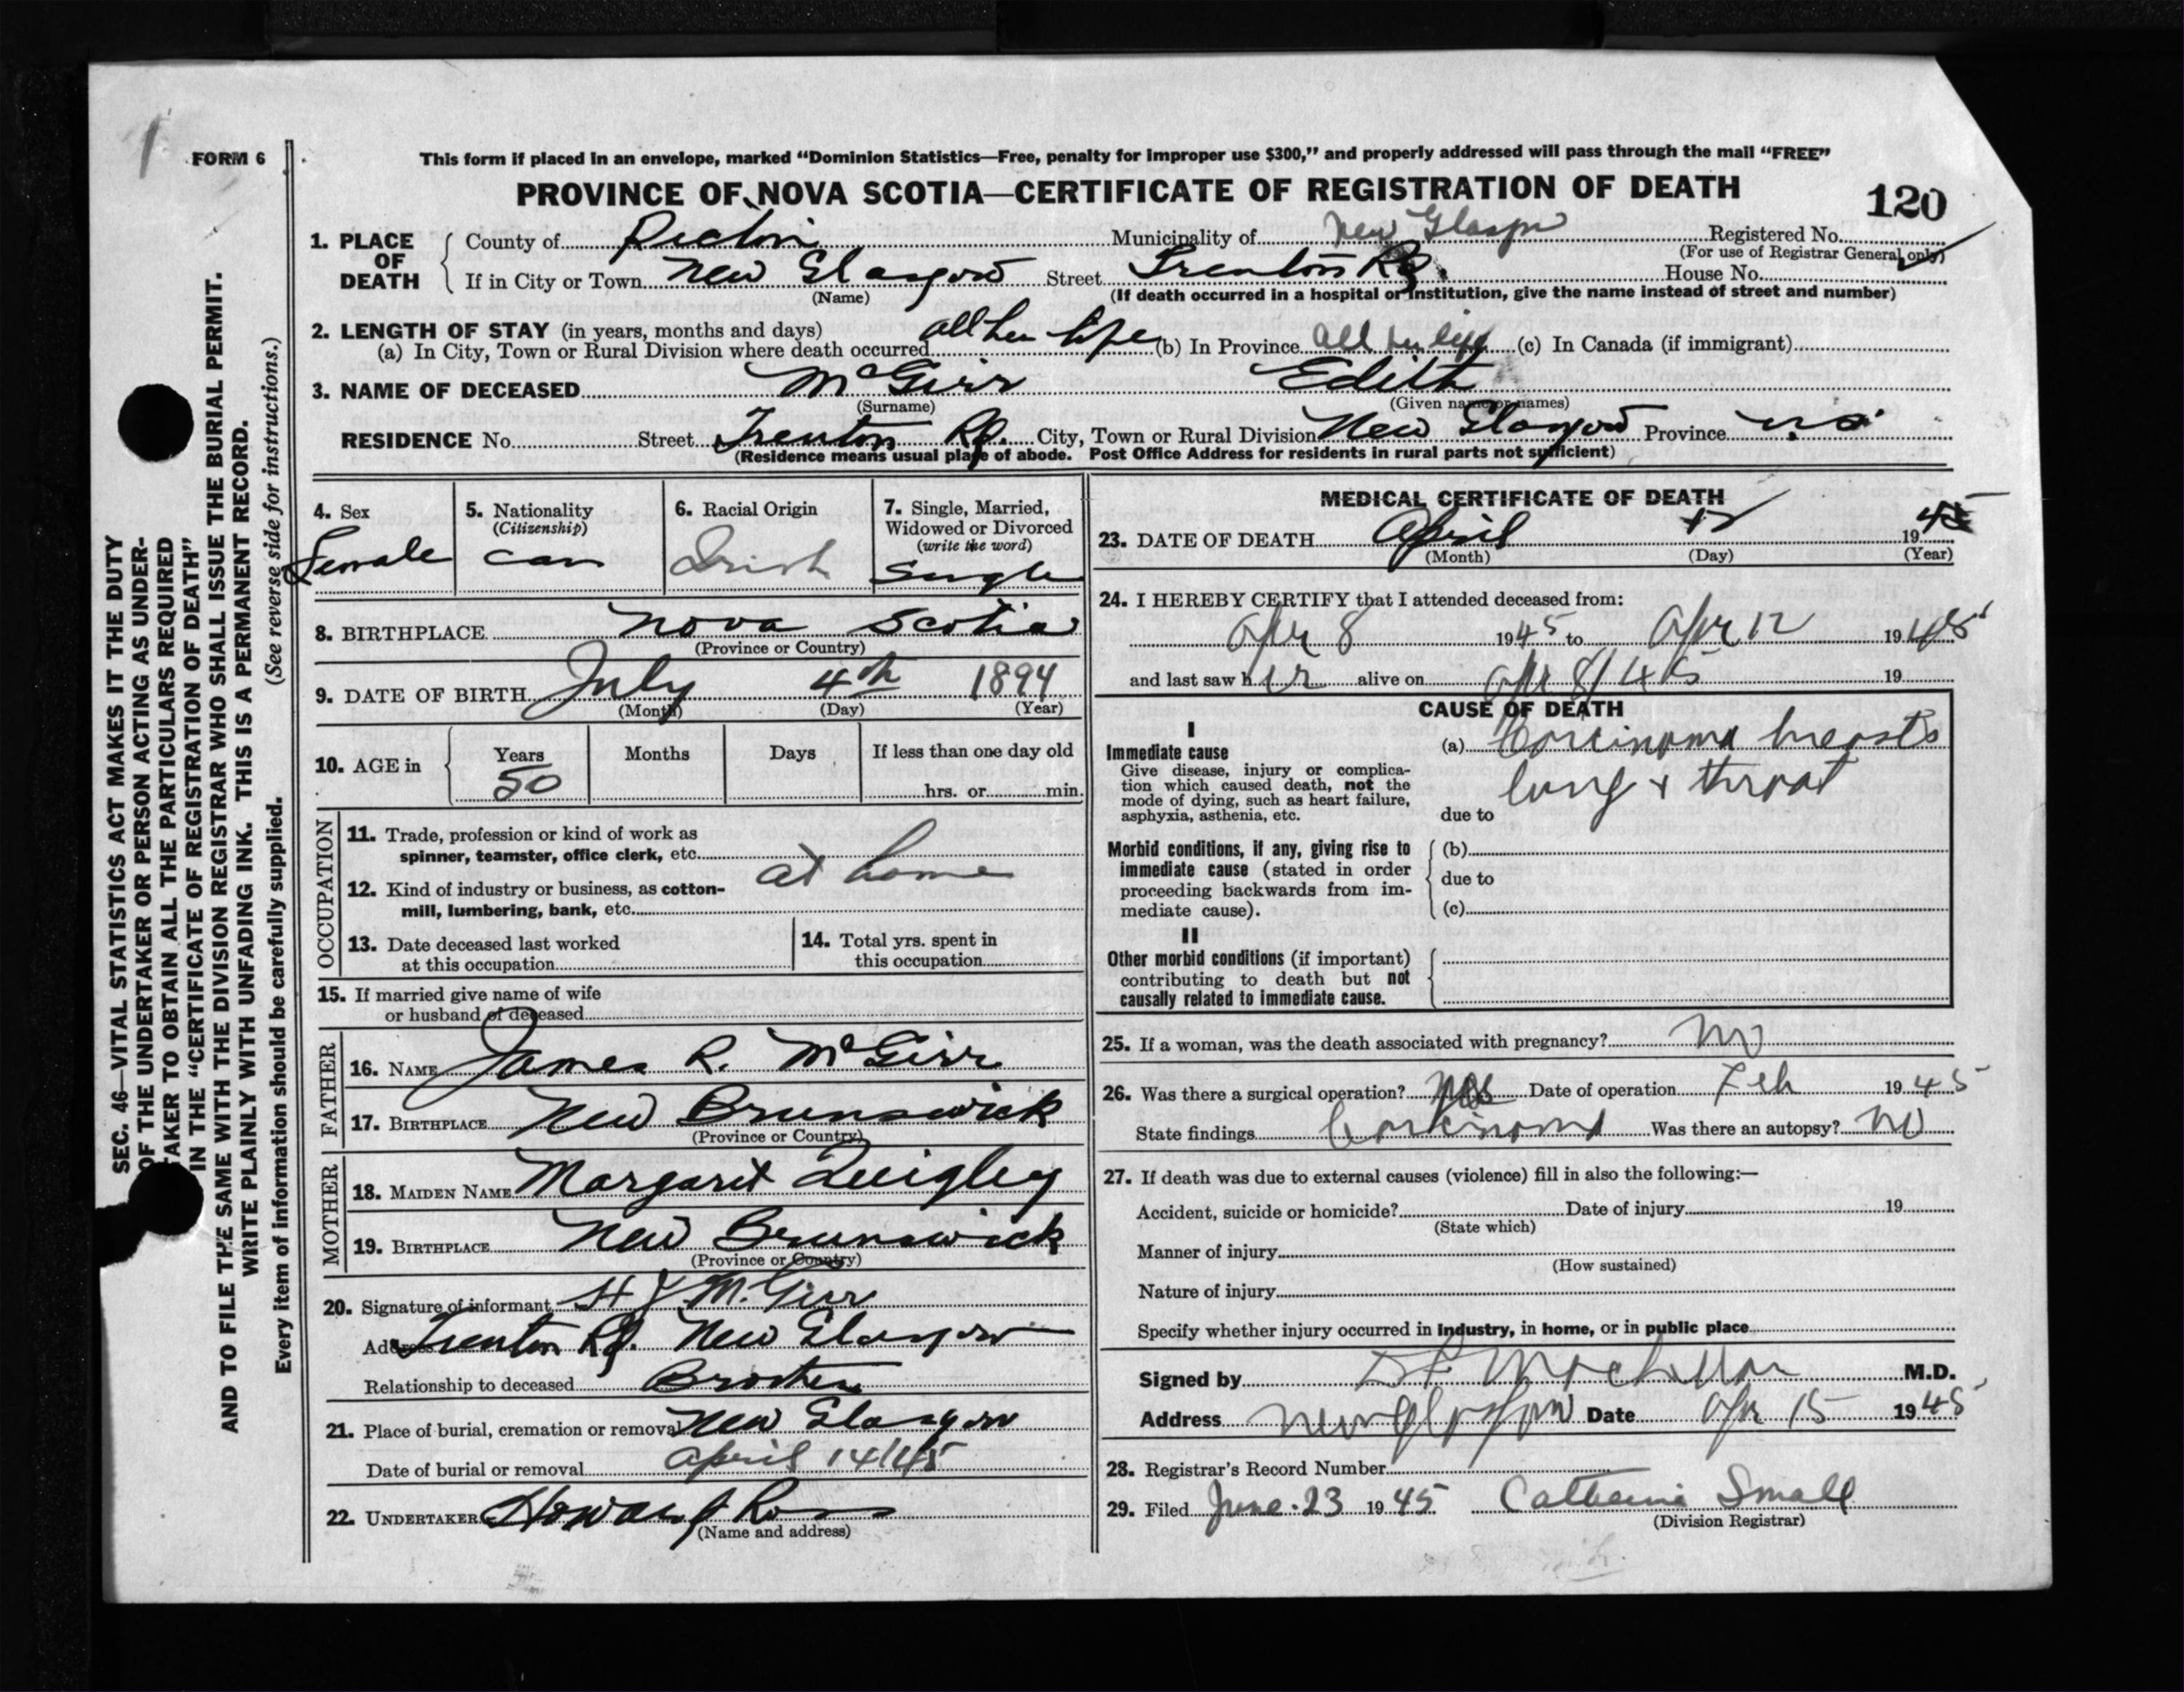 FORM 6
This form if placed in an envelope, marked “Dominion Statistics—Free, penalty for improper use $300,” and properly addressed will pass through the mail “FREE”
PROVINCE OF NOVA SCOTIA—CERTIFICATE OF REGISTRATION OF DEATH
120
1. PLACE OF DEATH
County of Pictou Municipality of New Glasgow Registered No.
(For use of Registrar General only)
If in City or Town New Glasgow Street Trenton Rd. House No.
(Name) (If death occurred in a hospital or institution, give the name instead of street and number)
2. LENGTH OF STAY (in years, months and days)
(a) In City, Town or Rural Division where death occurred all her life (b) In Province all her life (c) In Canada (if immigrant)
3. NAME OF DECEASED McGirr Edith
(Surname) (Given name or names)
RESIDENCE No. Street Trenton Rd. City, Town or Rural Division New Glasgow Province N.S.
(Residence means usual place of abode. Post Office Address for residents in rural parts not sufficient)
4. Sex
Female
5. Nationality
(Citizenship)
Can
6. Racial Origin
Irish
7. Single, Married,
Widowed or Divorced
(write the word)
Single
8. BIRTHPLACE Nova Scotia
(Province or Country)
9. DATE OF BIRTH July 4th 1894
(Month) (Day) (Year)
10. AGE in
Years Months Days If less than one day old
50 hrs. or min.
OCCUPATION
11. Trade, profession or kind of work as
spinner, teamster, office clerk, etc.
at home
12. Kind of industry or business, as cotton-
mill, lumbering, bank, etc.
13. Date deceased last worked
at this occupation
14. Total yrs. spent in
this occupation
15. If married give name of wife
or husband of deceased
FATHER
16. NAME James R. McGirr
17. BIRTHPLACE New Brunswick
(Province or Country)
MOTHER
18. MAIDEN NAME Margaret Quigley
19. BIRTHPLACE New Brunswick
(Province or Country)
20. Signature of informant H J McGirr
Address Trenton Rd. New Glasgow
Relationship to deceased Brother
21. Place of burial, cremation or removal New Glasgow
Date of burial or removal April 14/45
22. UNDERTAKER Howard Ross
(Name and address)
MEDICAL CERTIFICATE OF DEATH
23. DATE OF DEATH April 12 1945
(Month) (Day) (Year)
24. I HEREBY CERTIFY that I attended deceased from:
Apr 8 1945 to Apr 12 1945
and last saw her alive on Apr 8/45 19
CAUSE OF DEATH
I
Immediate cause
Give disease, injury or complica-
tion which caused death, not the
mode of dying, such as heart failure,
asphyxia, asthenia, etc.
(a) Carcinoma breasts
lung & throat
due to
Morbid conditions, if any, giving rise to
immediate cause (stated in order
proceeding backwards from im-
mediate cause).
(b)
due to
(c)
II
Other morbid conditions (if important)
contributing to death but not
causally related to immediate cause.
25. If a woman, was the death associated with pregnancy? No
26. Was there a surgical operation? Yes Date of operation Feb 1945
State findings Carcinoma Was there an autopsy? No
27. If death was due to external causes (violence) fill in also the following:—
Accident, suicide or homicide? Date of injury 19
(State which)
Manner of injury
(How sustained)
Nature of injury
Specify whether injury occurred in industry, in home, or in public place
Signed by M.D.
Address New Glasgow Date Apr 15 1945
28. Registrar's Record Number
29. Filed June 23 1945 Catherine Small
(Division Registrar)
SEC. 46—VITAL STATISTICS ACT MAKES IT THE DUTY
OF THE UNDERTAKER OR PERSON ACTING AS UNDER-
TAKER TO OBTAIN ALL THE PARTICULARS REQUIRED
IN THE “CERTIFICATE OF REGISTRATION OF DEATH”
AND TO FILE THE SAME WITH THE DIVISION REGISTRAR WHO SHALL ISSUE THE BURIAL PERMIT.
WRITE PLAINLY WITH UNFADING INK. THIS IS A PERMANENT RECORD.
Every item of information should be carefully supplied. (See reverse side for instructions.)